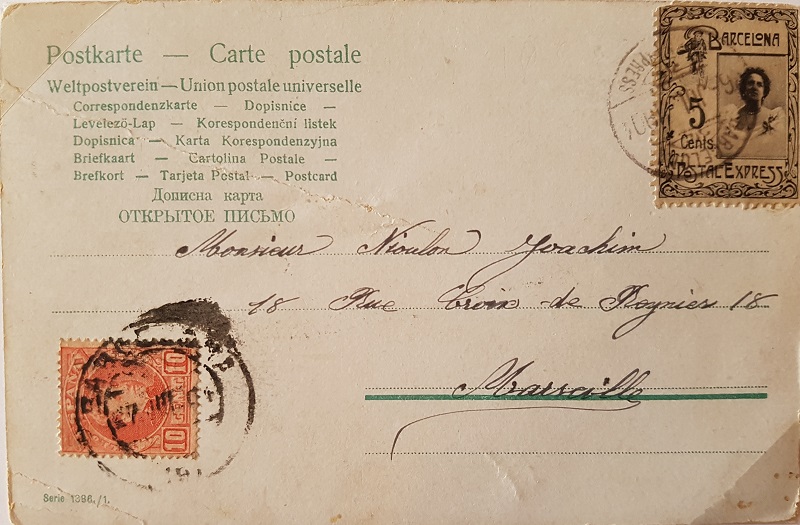 Postkarte — Carte postale
Weltpostverein — Union postale universelle
Correspondenzkarte — Dopisnice —
Levelező-Lap — Korespondenční listek
Dopisnica — Karta Korespondenzyjna
Briefkaart — Cartolina Postale —
Brefkort — Tarjeta Postal — Postcard
Дописна карта
ОТКРЫТОЕ ПИСЬМО
BARCELONA
5
Cents.
POSTAL EXPRESS
Monsieur Nioulon Joachim
18 Rue Croix de Regnier 18
Marseille
10 10
Serie 1396./1.